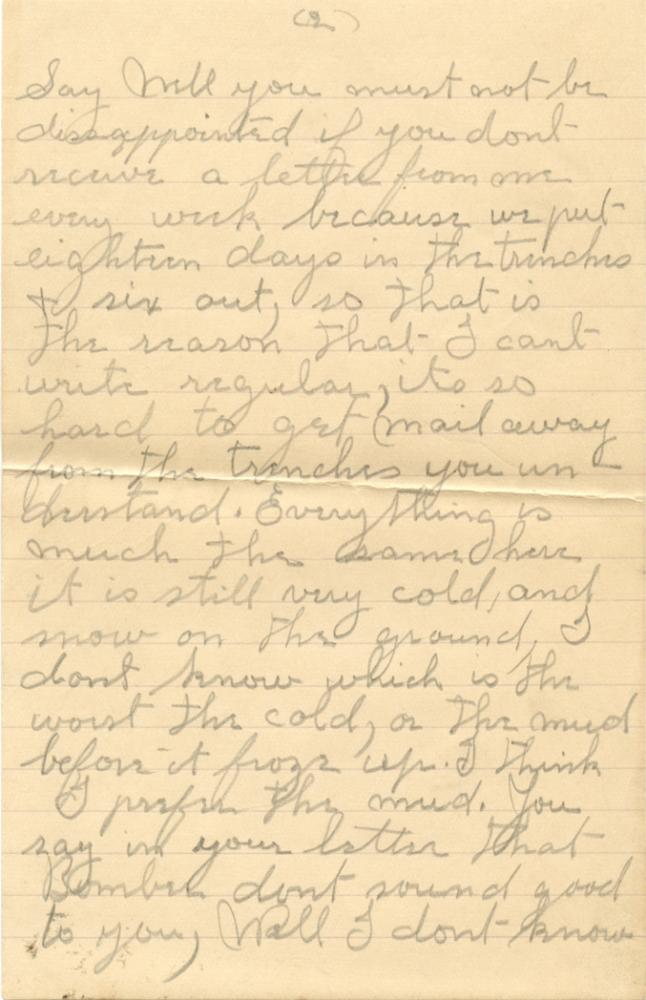 (2)
Say Well you must not be
dissappointed if you dont
receive a letter from me
every week because we put
eighteen days in the trenches
& six out, so that is
the reason that I cant
write regular, its so
hard to get mail away
from the trenches you un-
derstand. Everything is
much the same here
it is still very cold, and
snow on the ground, I
dont know which is the
worst the cold, or the mud
before it froze up. I think
I prefer the mud. You
say in your letter that
Bomber dont sound good
to you, Well I dont know